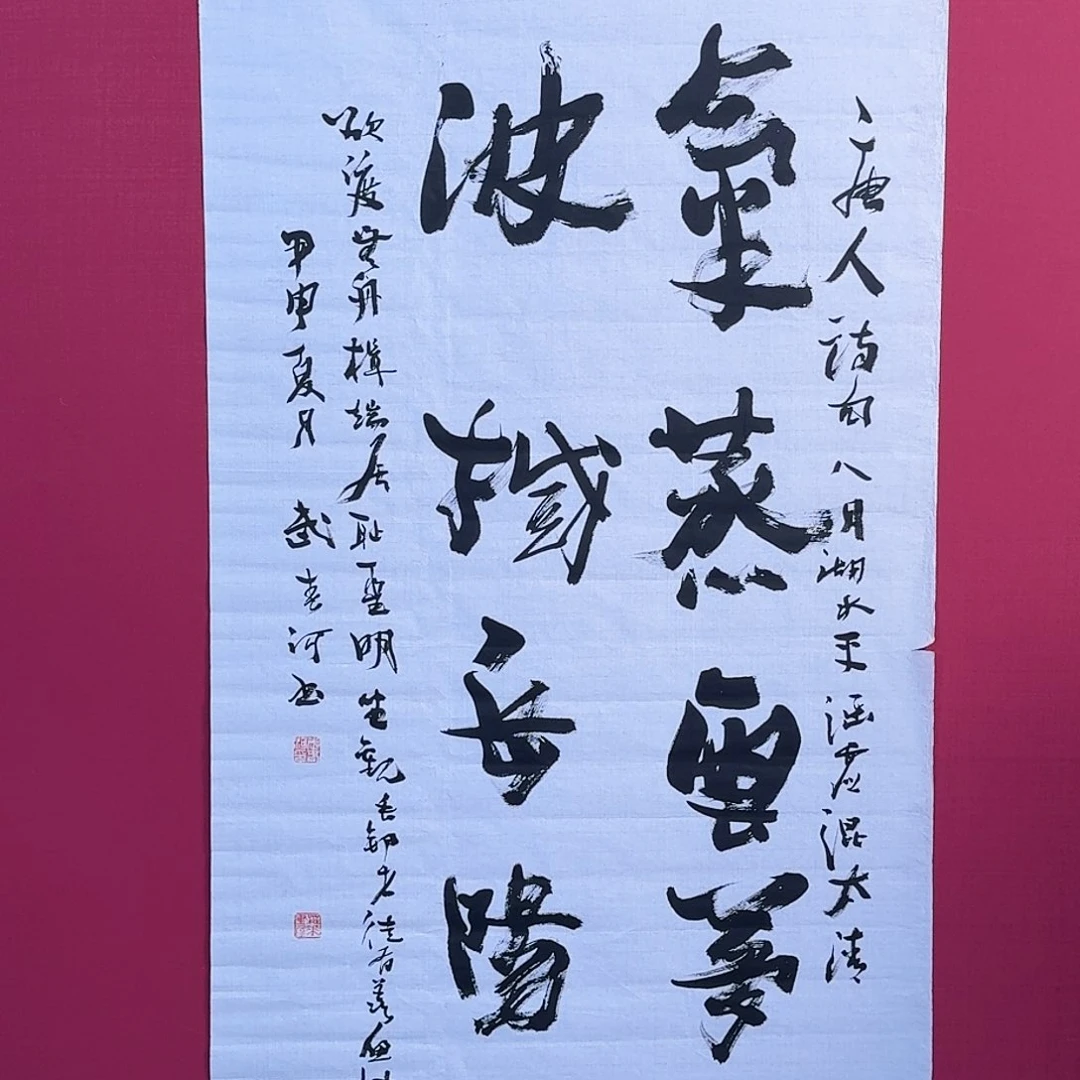 唐人詩句八月湖水平涵虛混太清
氣蒸雲夢
波撼岳陽
欲渡無舟楫端居耻聖明坐觀垂釣者徒有羨魚
甲申夏月 武春河书